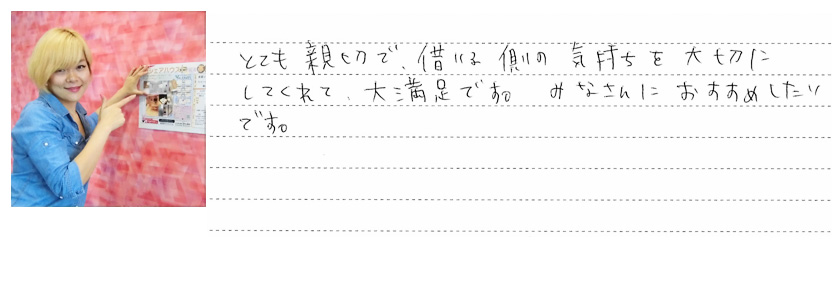 シェアハウス
とても親切で、借りる側の気持ちを大切に
してくれて、大満足です。 みなさんに おすすめしたい
です。